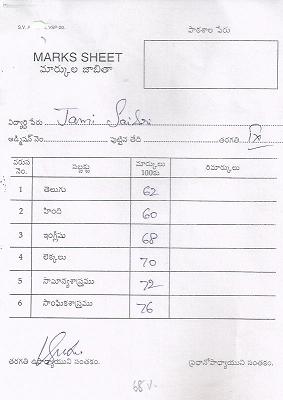 పాఠశాల పేరు
MARKS SHEET
మార్కుల జాబితా
విద్యార్థి పేరు Jami Saidi
అడ్మిషన్ నెం. పుట్టిన తేది తరగతి IX
వరుస నెం. సబ్జక్టు మార్కులు 100కు రిమార్కులు
1 తెలుగు 62
2 హింది 60
3 ఇంగ్లీషు 68
4 లెక్కలు 70
5 సామాన్యశాస్త్రము 72
6 సాంఘికశాస్త్రము 76
తరగతి ఉపాధ్యాయుని సంతకం. ప్రధానోపాధ్యాయుని సంతకం.
68%